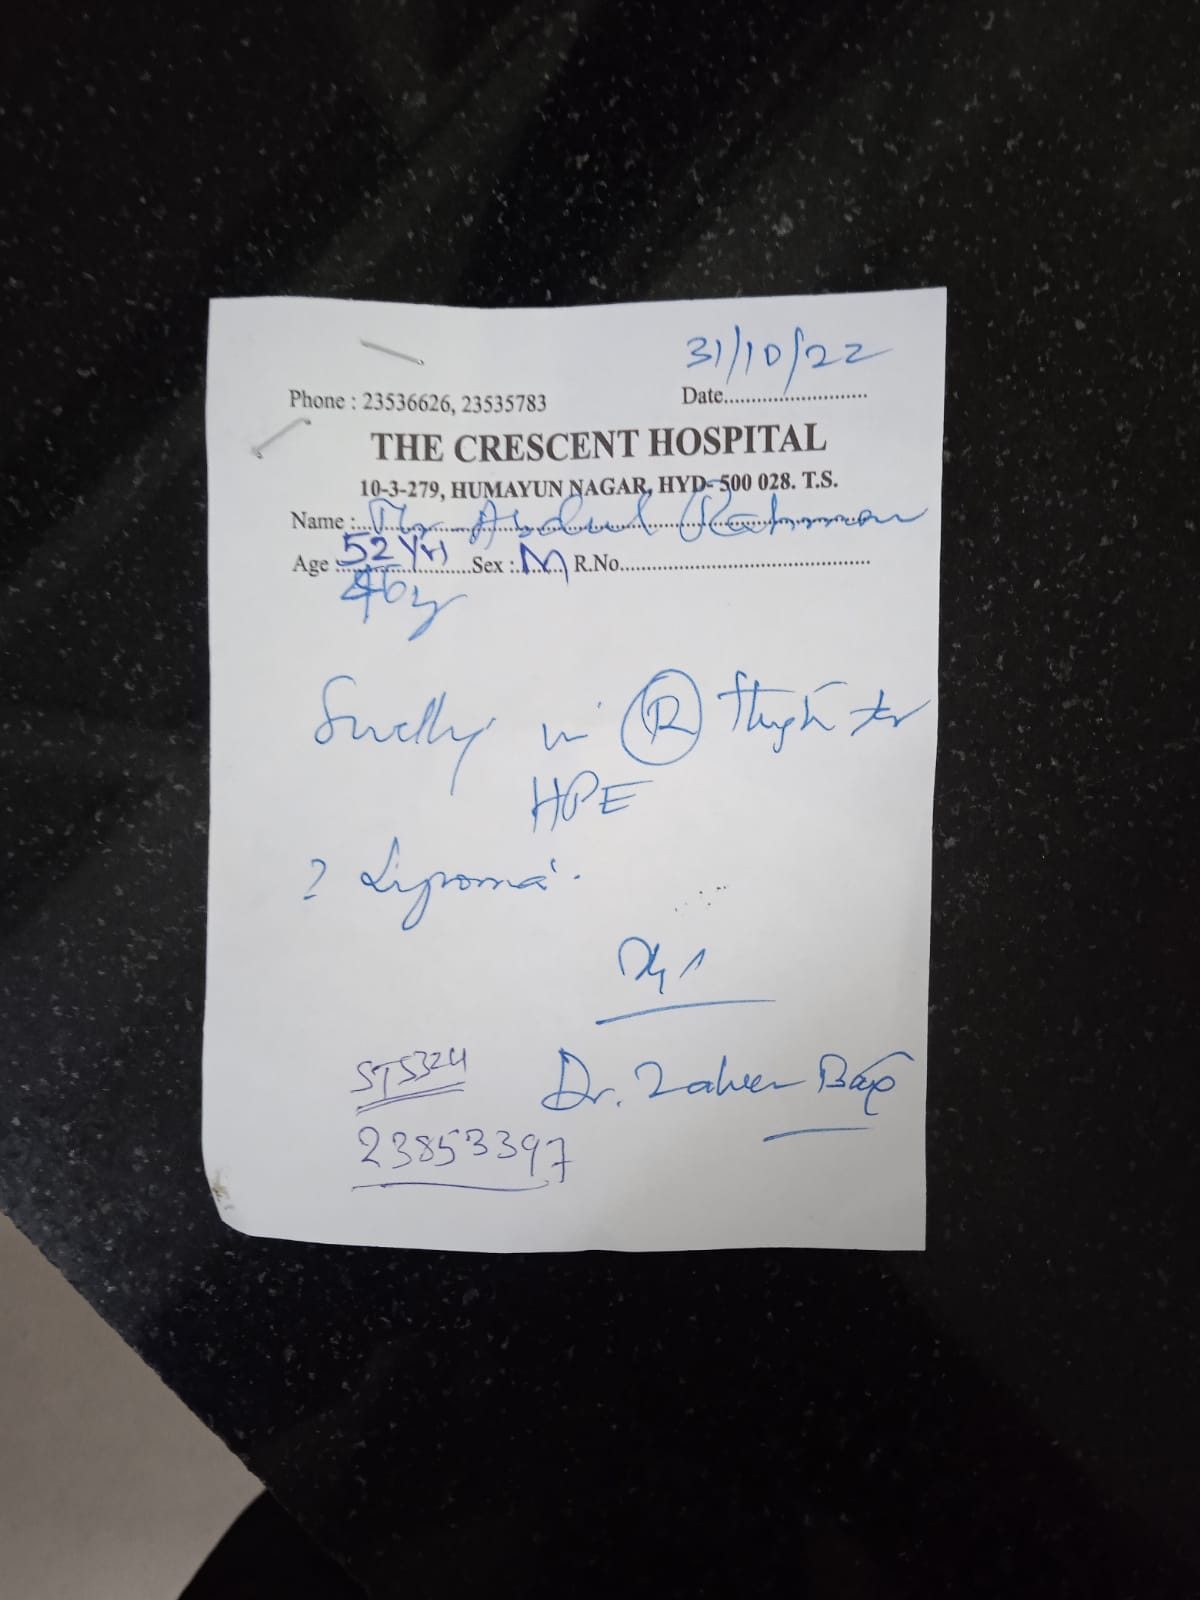 31/10/22
Phone : 23536626, 23535783 Date..........................
THE CRESCENT HOSPITAL
10-3-279, HUMAYUN NAGAR, HYD- 500 028. T.S.
Name :... Mr Abdul Rahman
Age : 52 Yrs Sex : M R.No..............................................
46y
Swelling in R Thigh for
HPE
? Lipoma.
Dr. Zaheer Baig
ST5324
23853397